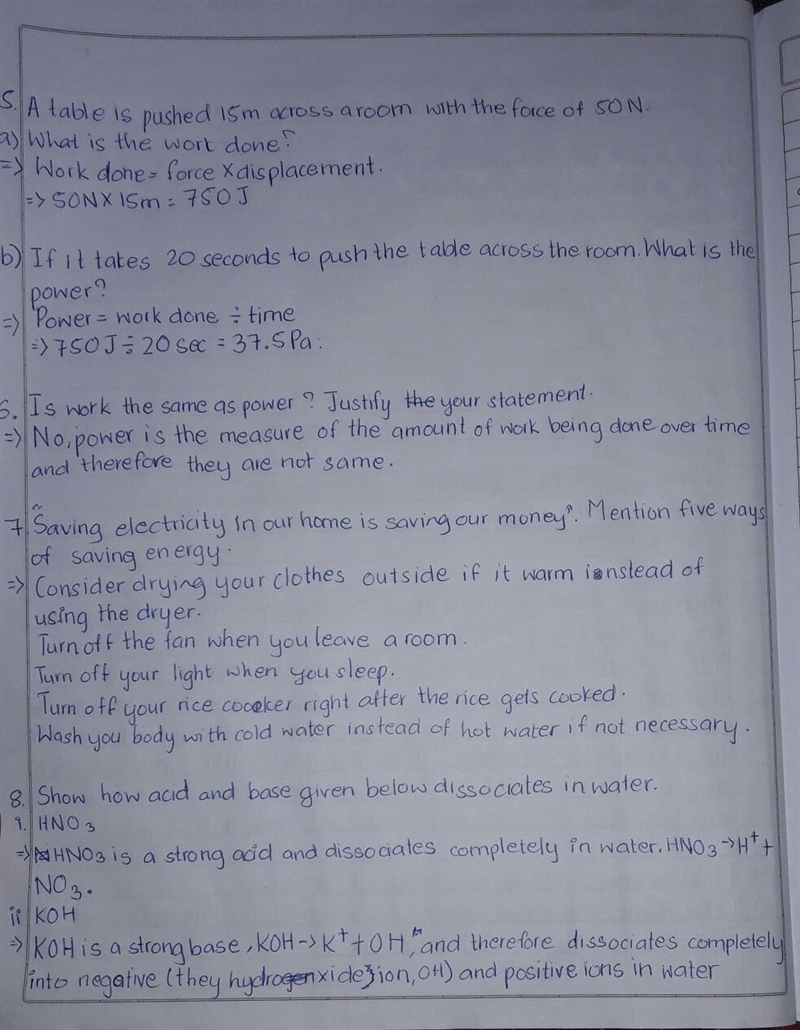 5. A table is pushed 15m across a room with the force of 50N.
a) What is the work done?
=> Work done = force x displacement.
=> 50N x 15m = 750J
b) If it takes 20 seconds to push the table across the room. What is the
power?
=> Power = work done ÷ time
=> 750J ÷ 20 sec = 37.5 Pa.
6. Is work the same as power? Justify the your statement.
=> No, power is the measure of the amount of work being done over time
and therefore they are not same.
7. "Saving electricity in our home is saving our money". Mention five ways
of saving energy.
=> Consider drying your clothes outside if it warm instead of
using the dryer.
Turn off the fan when you leave a room.
Turn off your light when you sleep.
Turn off your rice coocker right after the rice gets cooked.
Wash you body with cold water instead of hot water if not necessary.
8. Show how acid and base given below dissociates in water.
i. HNO3
=> HNO3 is a strong acid and dissociates completely in water. HNO3 -> H+ +
NO3.
ii KOH
=> KOH is a strong base, KOH -> K+ + OH-, and therefore dissociates completely
into negative (they hydrogenxide ion, OH) and positive ions in water